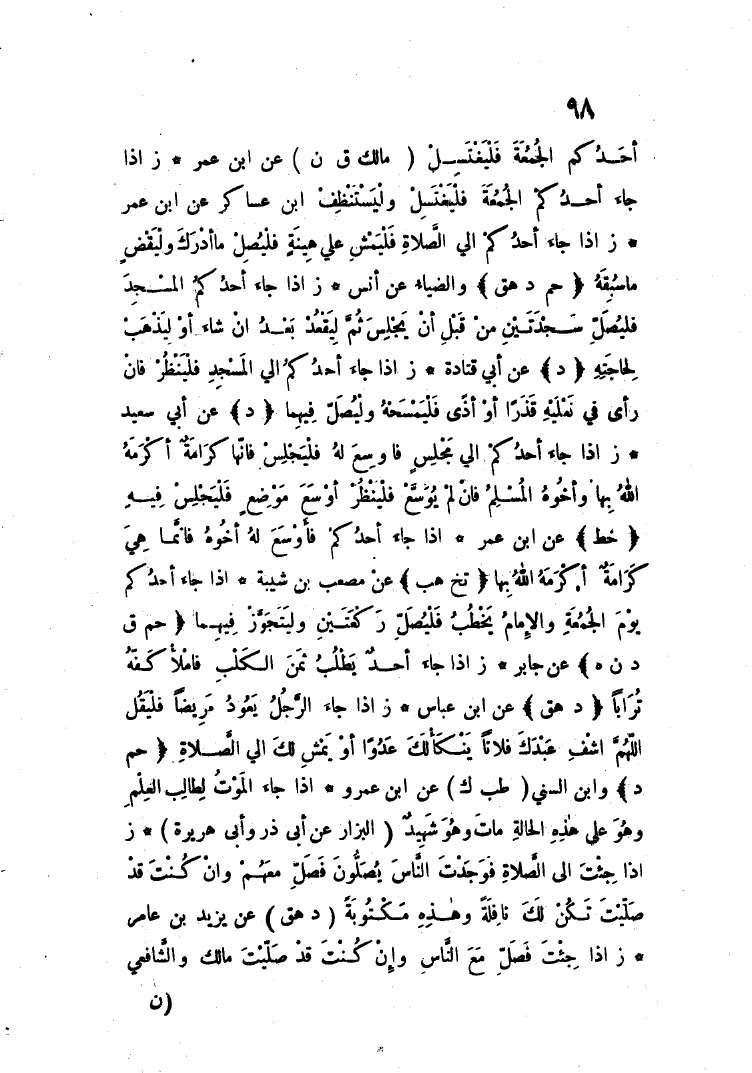 ٩٨
أَحَدُكم الجُمُعَةَ فَلْيَغْتَسِلْ ( مالك ق ن ) عن ابن عمر * ز اذا
جاء أحدُكُمُ الجُمُعَةَ فَلْيَغْتَسِلْ ولْيَسْتَنْظِفْ ابن عساكر عن ابن عمر
* ز اذا جاء أحدُكُمْ الي الصَّلاةِ فَلْيَمْشِ علي هِينَةٍ فَلْيُصَلِّ ماأدْرَكَ ولْيَقْضِ
ماسُبِقَهُ ﴿ حم د هق ﴾ والضياء عن أنس * ز اذا جاء أحدُكُمُ المَسْجِدَ
فليُصَلِّ سَجْدَتَيْنِ مِنْ قَبْلِ أنْ يَجْلِسَ ثُمَّ لِيَقْعُدْ بَعْدُ انْ شاء أوْ لِيَذْهَبْ
لِحاجَتِهِ ﴿ د ﴾ عن أبي قتادة * ز اذا جاء أحدُكُمُ الي المَسْجِدِ فَلْيَنْظُرْ فانْ
رأى في نَعْلَيْهِ قَذَرًا أوْ أذًى فَلْيَمْسَحْهُ ولْيُصَلِّ فِيهِما ﴿ د ﴾ عن أبي سعيد
* ز اذا جاء أحدُكُمْ الي مَجْلِسٍ فاوسِعَ لهُ فلْيَجْلِسْ فانَّها كَرَامَةٌ أكْرَمَهُ
اللهُ بِها وأخُوهُ المُسْلِمُ فانْ لَمْ يُوَسَّعْ فَلْيَنْظُرْ أوْسَعَ مَوْضِعٍ فَلْيَجْلِسْ فِيهِ
﴿ خط ﴾ عن ابن عمر * اذا جاء أحدُكُمْ فَأَوْسَعَ لهُ أخُوهُ فانَّما هِيَ
كَرَامَةٌ أكْرَمَهُ اللهُ بِها ﴿ تخ هب ﴾ عنْ مصعب بن شيبة * اذا جاء أحدُكم
يوْمَ الجُمُعَةِ والإمامُ يَخْطُبُ فَلْيُصَلِّ رَكْعَتَيْنِ ولْيَتَجَوَّزْ فِيهِما ﴿ حم ق
د ن ه ﴾ عن جابر * ز اذا جاء أحدٌ يَطْلُبُ ثمَنَ الكَلْبِ فامْلَأْ كَفَّهُ
تُرَابًا ﴿ د هق ﴾ عن ابن عباس * ز اذا جاء الرَّجُلُ يَعُودُ مَرِيضًا فليَقُل
اللَّهُمَّ اشْفِ عَبْدَكَ فلانًا يَنْكَأْ لَكَ عَدُوًّا أوْ يَمْشِ لكَ الي الصَّلاةِ ﴿ حم
د ﴾ وابن السني ( طب ك ) عن ابن عمرو * اذا جاء المَوْتُ لِطالِبِ العِلْمِ
وهُوَ علي هَذِهِ الحَالَةِ ماتَ وهُوَ شَهِيدٌ ( البزار عن أبي ذر وأبي هريرة ) * ز
اذا جِئْتَ الى الصَّلاةِ فَوَجَدْتَ النَّاسَ يُصَلُّونَ فَصَلِّ معهُمْ وانْ كُنْتَ قدْ
صَلَّيْتَ تَكُنْ لَكَ نافِلَةً وهَذِهِ مَكْتُوبَةً ( د هق ) عن يزيد بن عامر
* ز اذا جِئْتَ فَصَلِّ مَعَ النَّاسِ وإنْ كُنْتَ قدْ صَلَّيْتَ مالك والشَّافعي
( ن